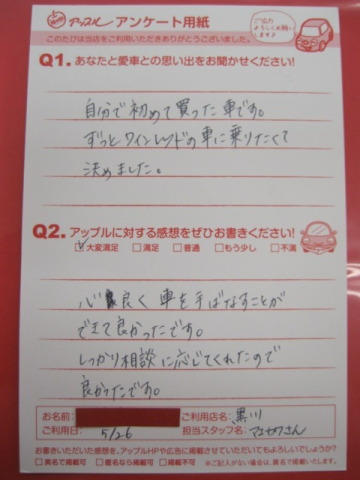 アップル アンケート用紙
このたびは当店をご利用いただきありがとうございました。
ご協力
よろしくお願い
します♪
Q1. あなたと愛車との思い出をお聞かせください!
自分で初めて買った車です。
ずっとワインレッドの車に乗りたくて
決めました。
Q2. アップルに対する感想をぜひお書きください!
☑大変満足 □満足 □普通 □もう少し □不満
心良く車を手ばなすことが
できて良かったです。
しっかり相談に応じてくれたので
良かったです。
お名前: ご利用店名: 黒川
ご利用日: 5/26 担当スタッフ名: マエカワさん
お書きいただいた感想を、アップルHPや広告に掲載させていただいてもよろしいでしょうか?
□実名で掲載可 □匿名なら掲載可 □掲載不可 ※ご記入がない場合は、匿名で掲載いたします。